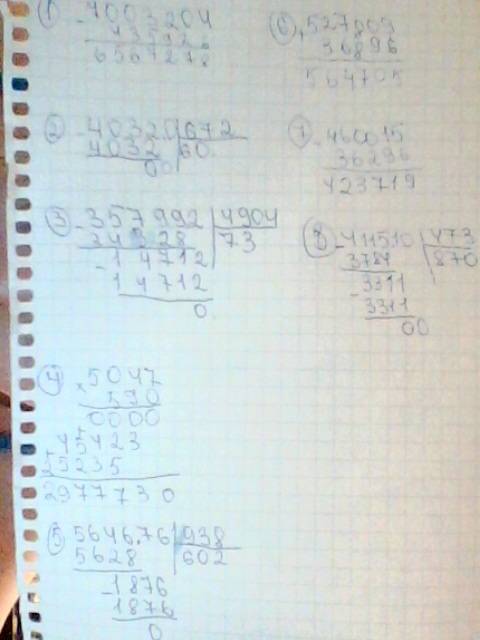 ① - 7003204
435926
6567278
② - 40320 | 672
4032 | 60
00
③ - 357992 | 4904
34328 | 73
- 14712
14712
0
④ × 5047
590
0000
+ 45423
25235
2977730
⑤ 564676 | 938
5628 | 602
- 1876
1876
0
⑥ + 527809
36896
564705
⑦ - 460015
36296
423719
⑧ - 411510 | 473
3784 | 870
- 3311
3311
00